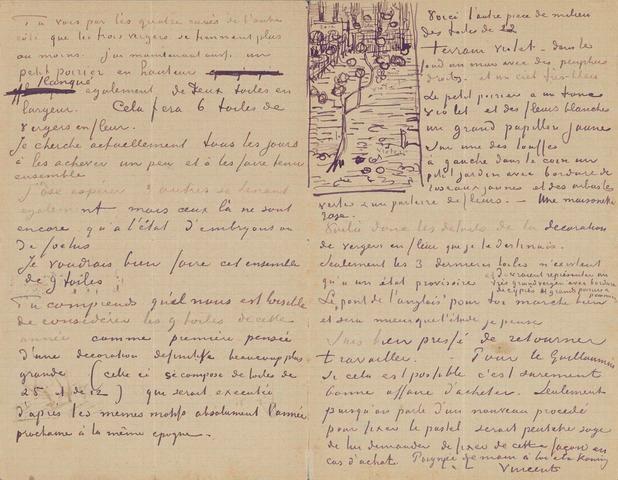 Tu vois par les quatre carrés de l'autre
côté que les trois vergers se tiennent plus
ou moins. j'ai maintenant aussi un
petit poirier en hauteur
flanqué également de deux toiles en
largeur. Cela fera 6 toiles de
vergers en fleur.
Je cherche actuellement tous les jours
à les achever un peu et à les faire tenir
ensemble
J'ose espérer 3 autres se tenant
également mais ceux là ne sont
encore qu'à l'état d'embryons ou
de foetus
Je voudrais bien faire cet ensemble
de 9 toiles
Tu comprends qu'il nous est loisible
de considérer les 9 toiles de cette
année comme première pensée
d'une décoration définitive beaucoup plus
grande (celle ci se compose de toiles de
25 et de 12) qui serait executée
d'après les mêmes motifs absolument l'année
prochaine à la même époque.
Voici l'autre pièce de milieu
des toiles de 12
terrain violet – dans le
fond un mur avec des peupliers
droits et un ciel très bleu
Le petit poirier a un tronc
violet et des fleurs blanches
un grand papillon jaune
sur une des touffes
à gauche dans le coin un
petit jardin avec bordure de
roseaux jaunes et des arbustes
verts et un parterre de fleurs – Une maisonette
rose.
Voilà donc les details de la décoration
de vergers en fleur que je te destinais.
Seulement les 3 dernières toiles n'existent
qu'à un état provisoire et devraient représenter un
très grand verger avec bordure
de cyprès et grands poiriers & pommiers
Le pont de l'anglois pour toi marche bien
et sera mieux que l'étude je pense
Suis bien pressé de retourner
travailler. – Pour le Guillaumin
si cela est possible c'est surement
bonne affaire d'acheter. Seulement
puisqu'on parle d'un nouveau procédé
pour fixer le pastel serait peutetre sage
de lui demander de fixer de cette façon en
cas d'achat Poignée de main à toi et à Koning
Vincent